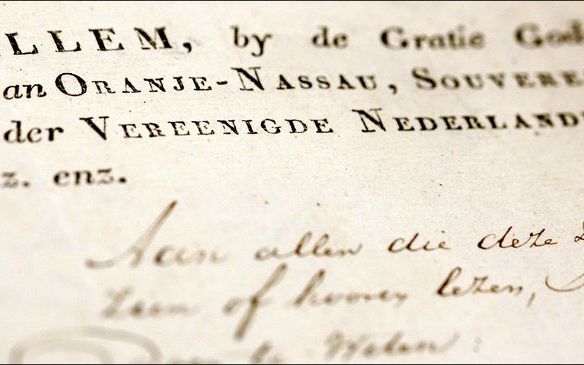 LLEM, by de Gratie God
an ORANJE-NASSAU, SOUVERE
der VEREENIGDE NEDERLAND
z. enz.
Aan allen die deze
zien of hooren lezen,
te Weten: